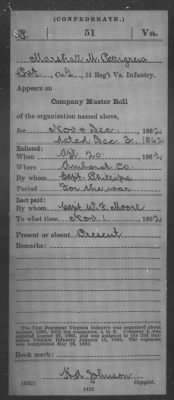 (CONFEDERATE.)
P. 51 Va.
Marshall M. Pettigrew
Pvt., Co. , 51 Reg't Va. Infantry.
Appears on
Company Muster Roll
of the organization named above,
for Nov & Dec, 1862
dated Dec 3, 1862
Enlisted:
When Apl 20, 1862
Where Amherst Co.
By whom Capt. Phillips
Period For the war
Last paid:
By whom Capt W. F. Moore
To what time Nov. 1, 1862
Present or absent Present
Remarks:
The 51st Regiment Virginia Infantry was organized about
Book mark:
Johnson
(642) Copyist.